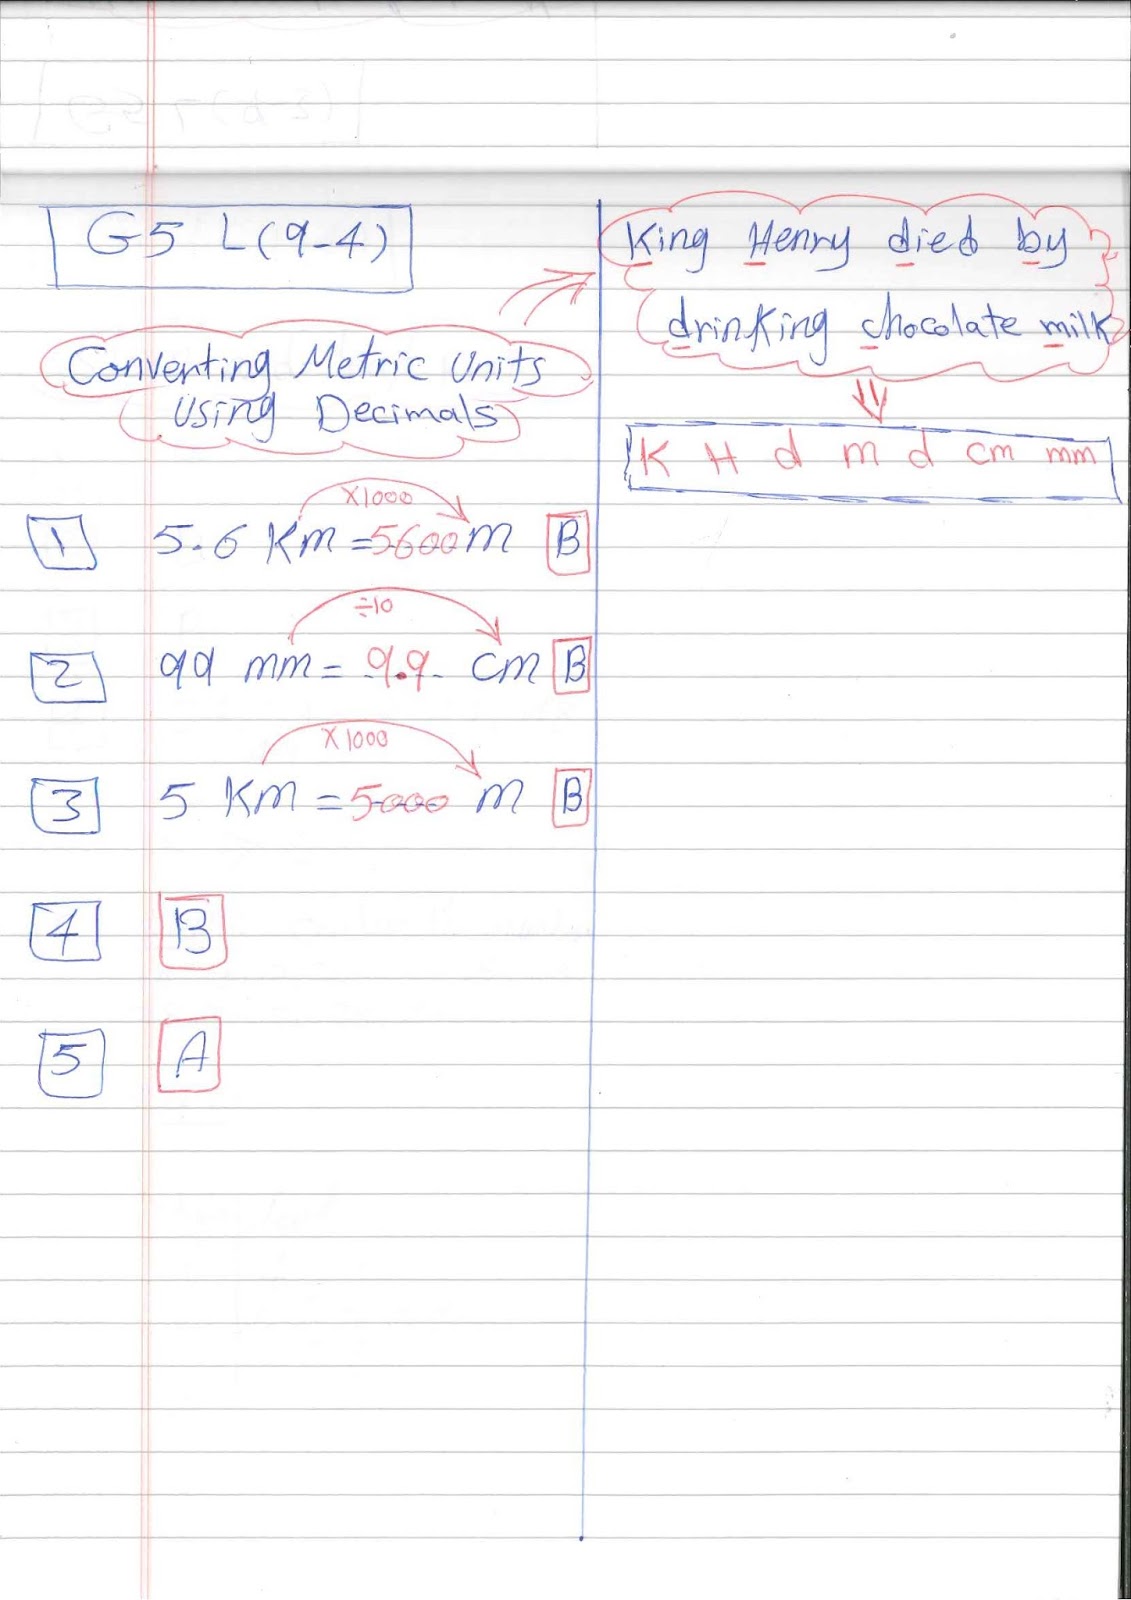 G5 L(9-4)
Converting Metric Units
Using Decimals
1 5.6 Km = 5600 m B
×1000
2 99 mm = 9.9 cm B
÷10
3 5 Km = 5000 m B
×1000
4 B
5 A
King Henry died by
drinking chocolate milk
K H d m d cm mm